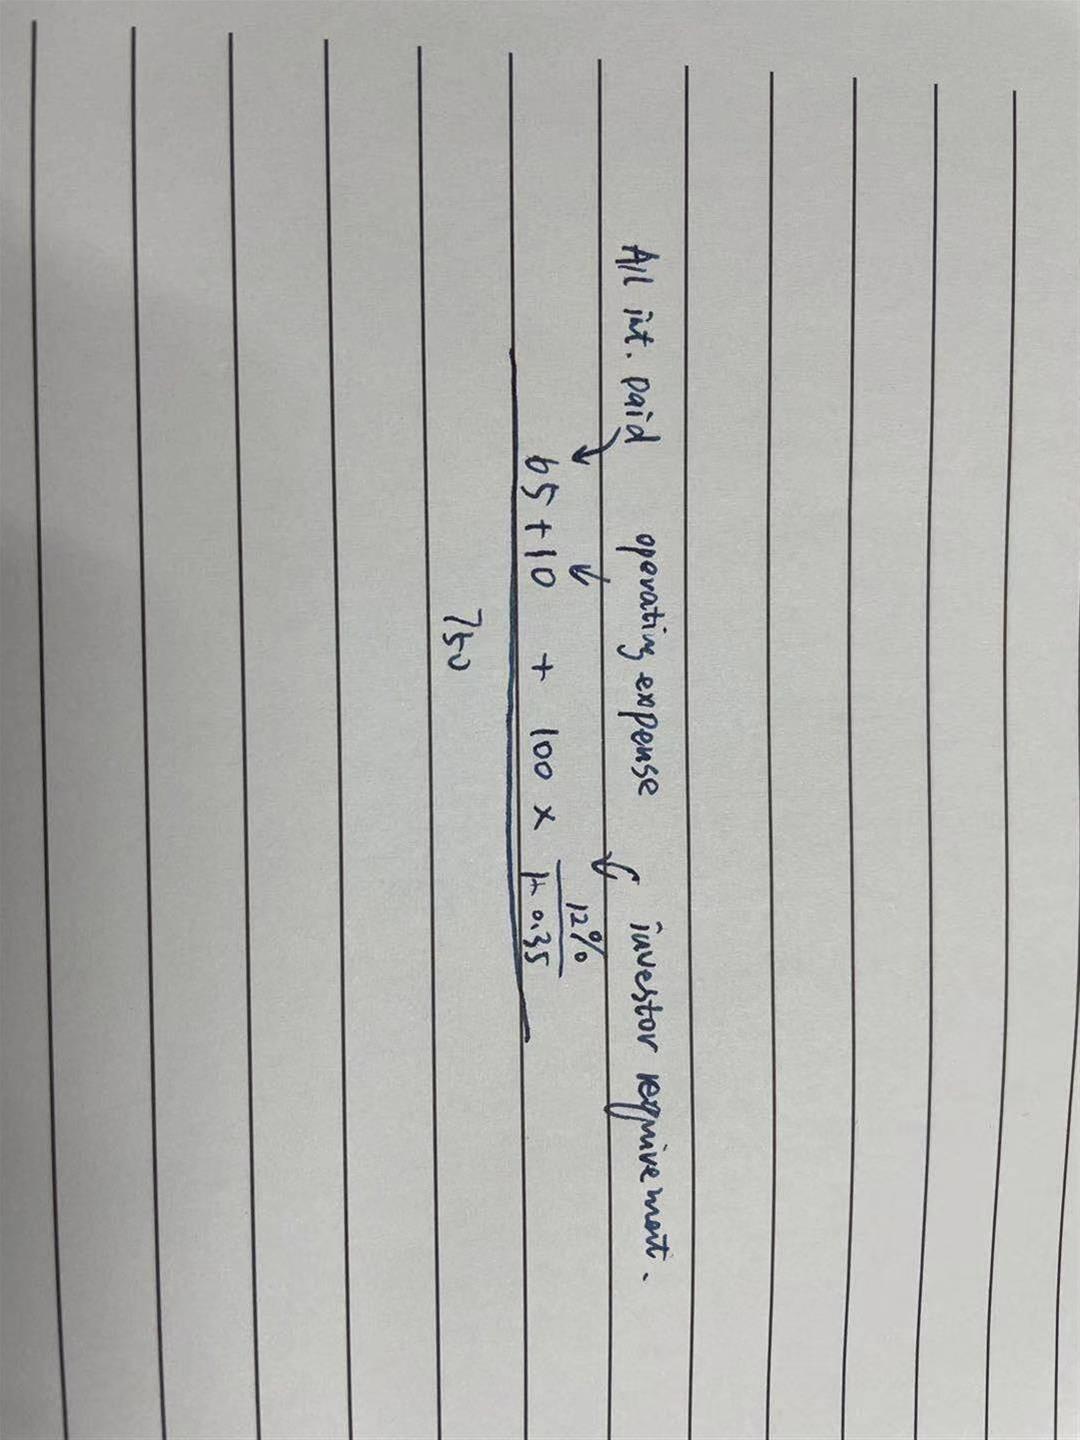 All int. paid operating expense investor requirement.
12%
65+10 + 100 ×
1-0.35
750